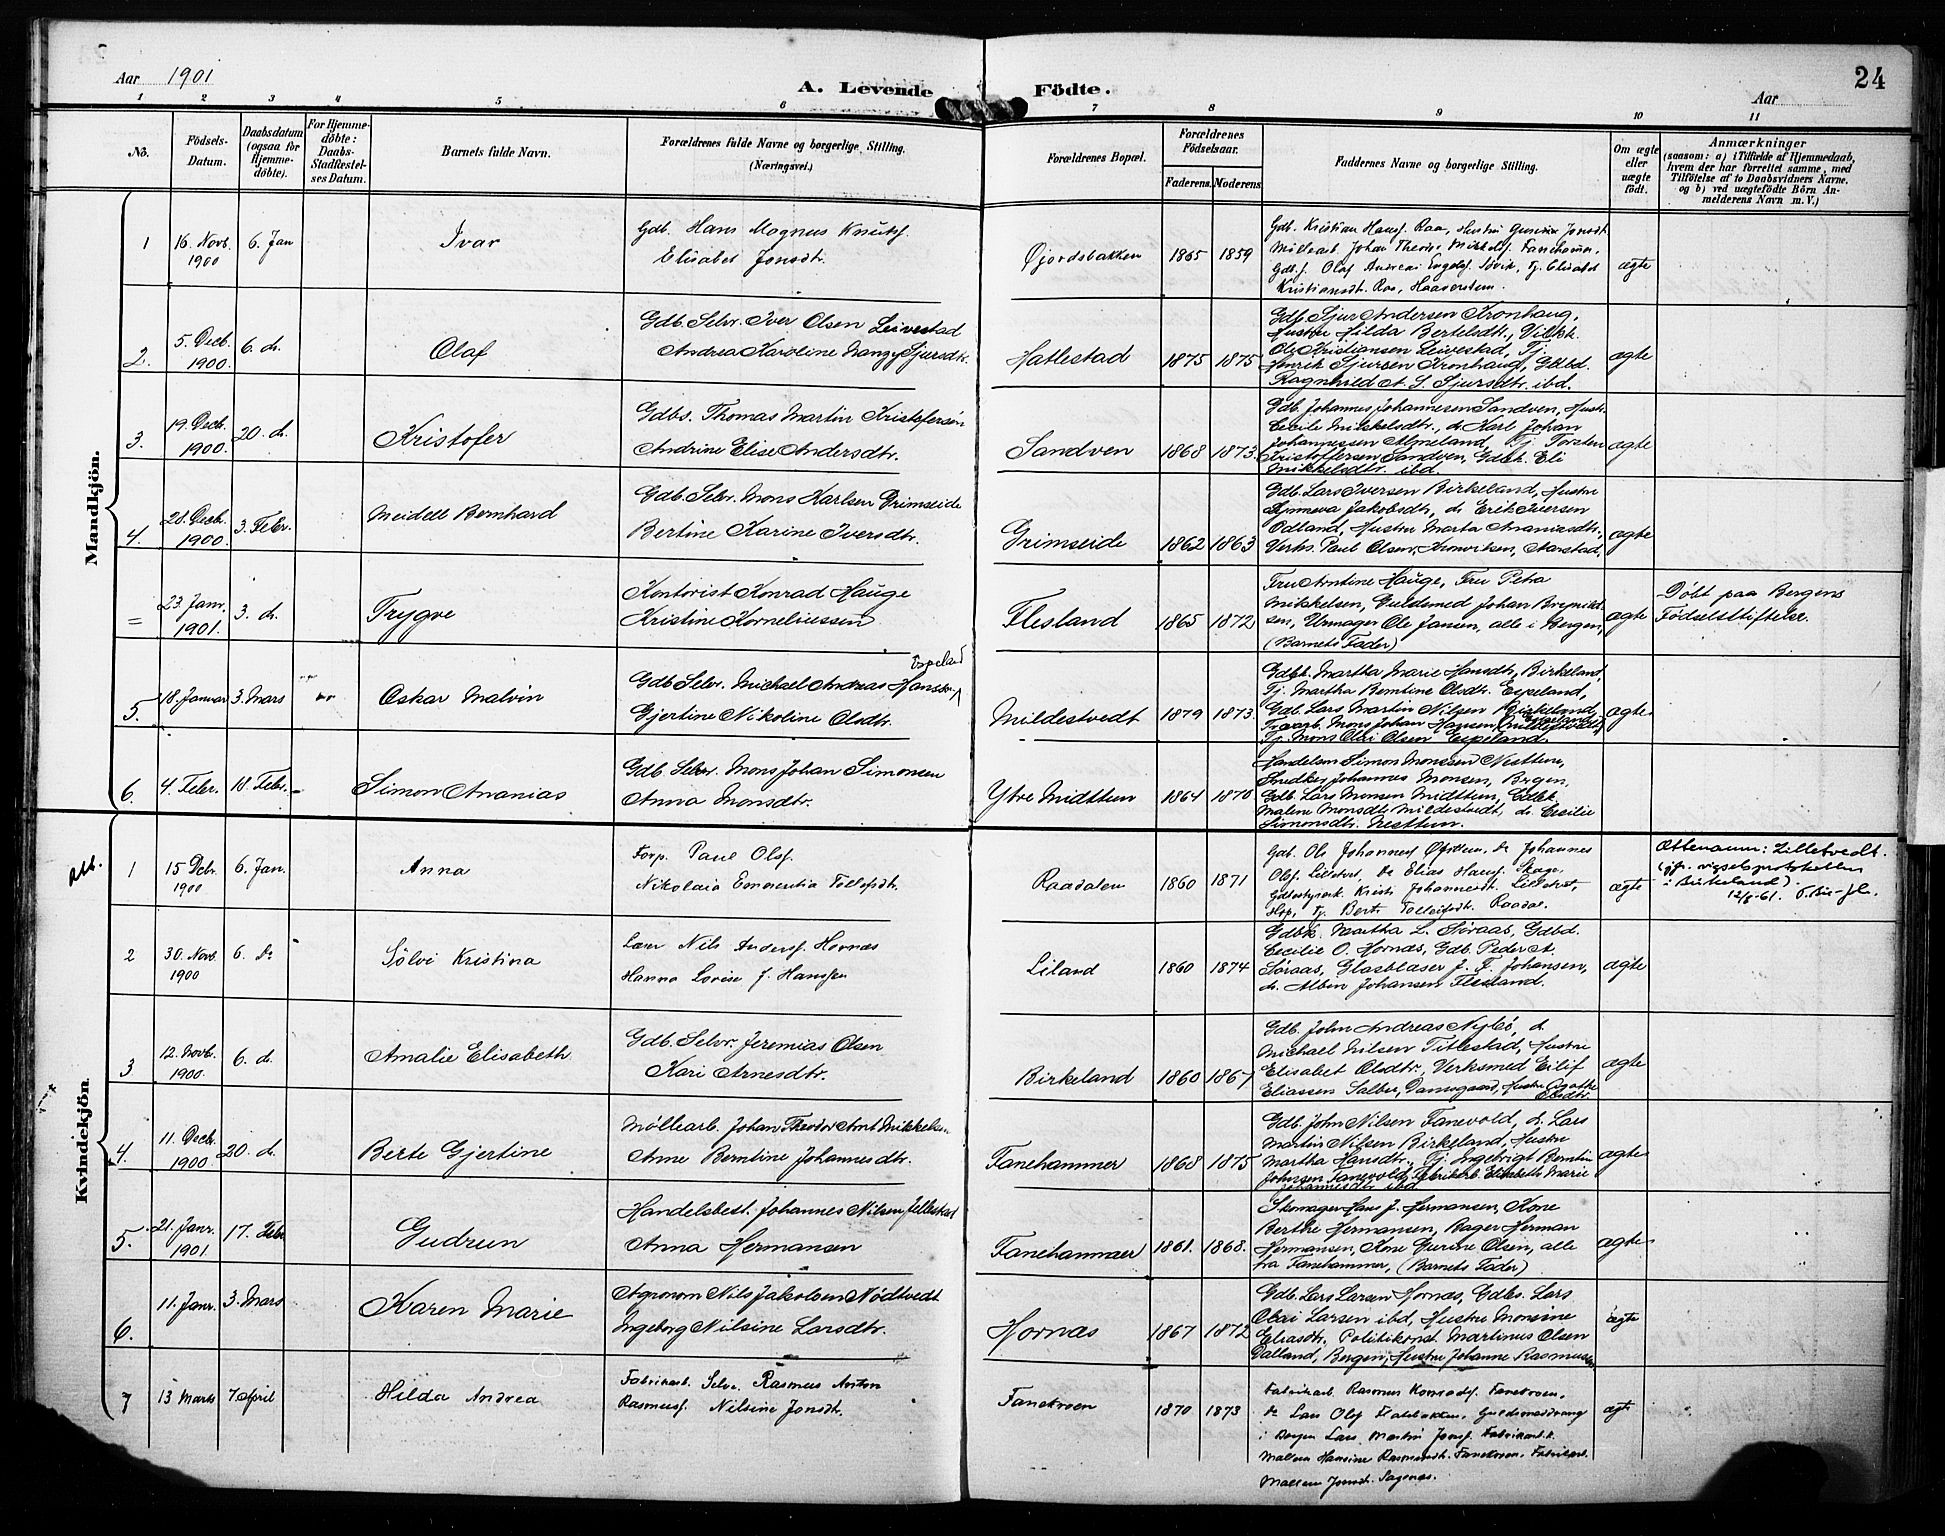 Aar 1901
A. Levende Födte.
Aar
24
1 2 3 4 5 6 7 8 9 10 11
No.
Födsels-Datum.
Daabsdatum (ogsaa for Hjemmedöbte).
For Hjemmedöbte: Daabs-Stadfæstelses Datum.
Barnets fulde Navn.
Forældrenes fulde Navne og borgerlige Stilling. (Næringsvei.)
Forældrenes Bopæl.
Forældrenes Födselsaar.
Faderens. Moderens.
Faddernes Navne og borgerlige Stilling.
Om ægte eller uægte födt.
Anmærkninger
(saasom: a) i Tilfælde af Hjemmedaab, hvem der har forrettet samme, med Tilföielse af to Daabsvidners Navne, og b) ved uægtefödte Börn Anmelderens Navn m. V.)
Mandkjön.
1 16. Novb. 1900 6. Jan Ivar
Gdb. Hans Magnus Knuts.
Elisabet Jonsdtr.
Øjordsbakken 1865 1859
Gdb. Kristian Hans. Raa, Hustru Gunvor Jonsdt.
Møllearb. Johan Theodor Mikkels. Fanehamer,
Gdb.s. Olaf Andreas Engels. Søvik, Tj. Elisabet
Kristiansdt. Raa, Haaverstun.
ægte
2. 5. Decb. 1900. 6. d. Olaf
Gdb. Selv. Iver Olsen Leivestad
Andrea Karoline Mangy Sjursdtr.
Hatlestad 1875 1875
Gdb. Sjur Andersen Kronhaug,
Hustru Hilda Bertelsdtr, Verkk.
Ole Kristiansen Leivestad, Tj.
Henrik Sjursen Kronhaug, Gdbd.
Ragnhild A. S. Sjursdtr. ibd.
ægte
3. 19. Decb. 1900. 20. d. Kristofer
Gdbs. Thomas Martin Kristofersön
Andrine Elise Andersdtr.
Sandven 1868 1873.
Gdb. Johannes Johannesen Sandven, Hustr.
Cecilie Mikkelsdtr, d. Karl Johan
Johannessen Almeland, Tj. Torsten
Kristoffersen Sandven, Gdbk. Eli
Mikkelsdtr. ibd.
ægte
4. 28. Decb. 1900. 3. Febr. Meidell Bernhard
Gdb. Selv. Mons Karlsen Grimseide
Bertine Karine Iversdtr.
Grimseide 1862 1863
Gdb. Lars Iversen Birkeland, Hustru
Synneva Jakobsdtr, d. Erik Iversen
Odland, Hustru Marta Ananiasdtr,
Verks. Paul Olsen, Kronviken, Aarstad.
ægte
= 23. Janr. 1901. 3. d. Trygve
Kontorist Konrad Hauge
Kristine Korneliussen
Flesland 1865 1872
Fru Arntine Hauge, Fru Petra
Mikkelsen, Guldsmed Johan Brynildsen,
Urmager Ole Jansen, alle i Bergen,
(Barnets Fader)
ægte
Döbt paa Bergens
Födselsstiftelse.
5. 18. Januar 3. Mars Oskar Malvin
Espeland
Gdb. Selv. Michael Andreas Hanssen
Gjertine Nikoline Olsdtr.
Mildestvedt 1879 1873.
Gdbk. Martha Marie Hansdtr, Birkeland,
Tj. Martha Berntine Olsdtr. Espeland,
Gdb. Lars Martin Nilsen Birkeland,
Mons Johan Hansen Espeland, Mildestvedt,
Tj. Mons Olai Olsen Espeland.
ægte
6. 4. Febr. 18. Febr. Simon Ananias
Gdb. Selv. Mons Johan Simonsen
Anna Monsdtr.
Ytre Midttun 1864 1870
Handelsm Simon Monssen Nesttun,
Snedker Johannes Monsen, Bergen,
Gdb. Lars Monsen Midttun, Gdbk.
Malene Monsdtr Mildestvedt, d. Cecilie
Simonsdtr. Nesttun.
ægte
Kvindekjön.
att.
1 15 Dcbr. 1900 6. Jan. Anna
Forp. Paul Ols.
Nikolaia Emerentia Tollefsdt.
Raadalen 1860 1871
Gdb. Ole Johannes. Øvsttun, Do Johannes
Ols. Lilletvet, Do Elias Hans. Skage,
Kristi Johannesdt. Lilletvet,
Hop, Tj. Berta Tolleifsdt. Raadal.
ægte
Ættenavn: Lilletvedt.
(jfr. vigselsprotokollen
i Birkeland).
12/8-61.
2 30. Novb. 1900 6. Do Sölvi Kristina
Lærer Nils Anders. Hornæs
Hanna Lovise J. Hanssen
Liland 1860 1874
Gdbk. Martha L. Søraas, Gdbd.
Cecilie O. Hornæs, Gdb. Peder A.
Søraas, Glasblæser J. F. Johansen,
d. Albin Johansen Flesland.
ægte
3 12. Novb. 1900. 6. d. Amalie Elisabeth
Gdb. Selv. Jeremias Olsen
Kari Arnesdtr.
Birkeland 1860 1867
Gdb. John Andreas Nybö, d.
Michael Nilsen Titlestad, Hustru
Elisabet Olsdtr, Verksmed Eilif
Eliassen Salbu, Damsgaard, Hustru Agathe
Elisdtr.
ægte
4. 11. Decb. 1900. 20. d. Berte Gjertine
Møllearb. Johan Theodor Arnt Mikkelsen
Anne Berntine Johannesdtr.
Fanehammer 1868 1875
Gdb. John Nilsen Fanevold, d. Lars
Martin Nilsen Birkeland, Hustru
Martha Hansdtr, Tj. Ingebrigt Berntin
Johnsen Fanevold, Fabrikarb. Elisabeth Marie
Johannesdtr ibd.
ægte
5. 21. Janr. 1901. 17. Febr Gudrun
Handelsbest. Johannes Nilsen Jellestad
Anna Hermansen
Fanehammer 1861. 1868.
Skomager Hans J. Hermansen, Kone
Berthe Hermansen, Bager Herman
Hermansen, Kone Gurine Olsen, alle
fra Fanehammer, (Barnets Fader)
ægte
6. 11. Janr. 3. Mars Karen Marie
Agronom Nils Jakobsen Nödtvedt
Ingeborg Nilsine Larsdtr.
Hornæs 1867 1872
Gdb. Lars Larsen Hornæs, Gdbs. Lars
Olai Larsen ibd, Hustru Monsine
Eliasdtr. Politikonst. Martinus Olsen
Dalland, Bergen, Hustru Johanne Rasmusen
ægte
7 13 Marts 7 April Hilda Andrea
Fabrikarb. Selv. Rasmus Anton
Rasmuss. Nilsine Jonsdt.
Fanekroen 1870 1873
Fabrikarb. Rasmus Konrads. Fanekroen,
Do Lars Ols. Flatebakken, Guldsmedsvang
i Bergen Lars Martin Jons. Fabrikarb.k.
Malena Hansine Rasmusdt. Fanekroen, Fabrikarb.
Malene Jonsdt. Sagenæs.
ægte